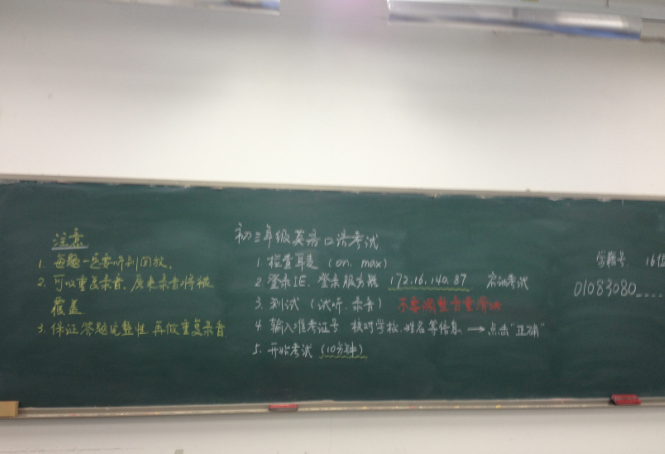 注意
1. 每题一定要听到回放.
2. 可以重复录音, 原来录音将被
覆盖
3. 保证答题完整性, 再做重复录音
初三年级英语口语考试
1. 检查耳麦 (on. max)
2. 登录IE. 登录服务器 172.16.140.87 考试
3. 测试 (试听. 录音) 不要调整音量
4. 输入准考证号 核对学校. 姓名等信息 → 点击"正确"
5. 开始考试 (10分钟)
学籍号 16位
01083080....